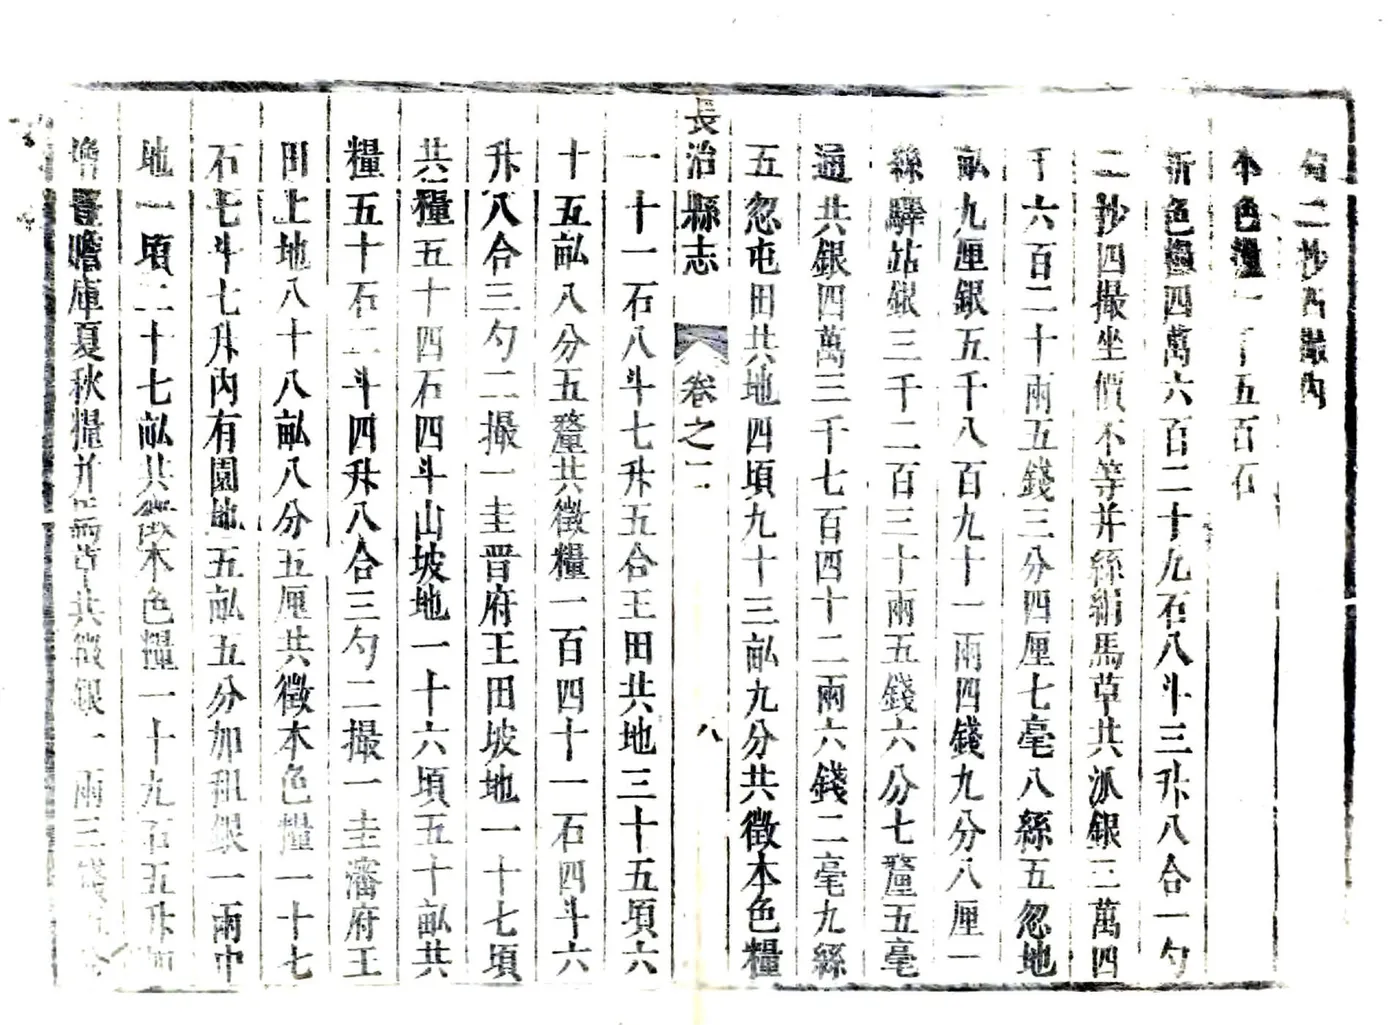 勺二抄四撮內
本色糧一千五百石
新色糧四萬六百二十九石八斗三升八合一勺
二抄四撮坐價不等并絲絹馬草共派銀三萬四
千六百二十兩五錢三分四厘七毫八絲五忽地
畝九厘銀五千八百九十一兩四錢九分八厘一
絲驛站銀三千二百三十兩五錢六分七釐五毫
通共銀四萬三千七百四十二兩六錢二毫九絲
五忽屯田共地四頃九十三畝九分共徵本色糧
長治縣志 卷之二 八
一十一石八斗七升五合王田共地三十五頃六
十五畝八分五釐共徵糧一百四十一石四斗六
升八合三勺二撮一圭晋府王田坡地一十七頃
共糧五十四石四斗山坡地一十六頃五十畝共
糧五十石二斗四升八合三勺二撮一圭瀋府王
田上地八十八畝八分五厘共徵本色糧一十七
石七斗七升內有園地五畝五分加租銀一兩中
地一頃二十七畝共徵本色糧一十九石五升
贍庫夏秋糧并共徵銀一兩三錢